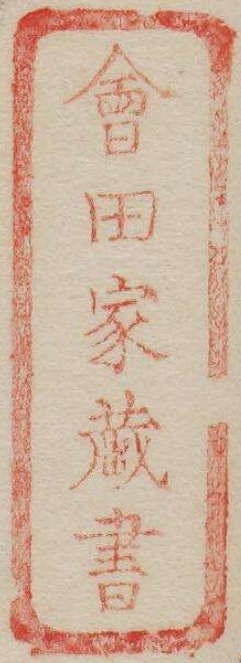 會田家蔵書